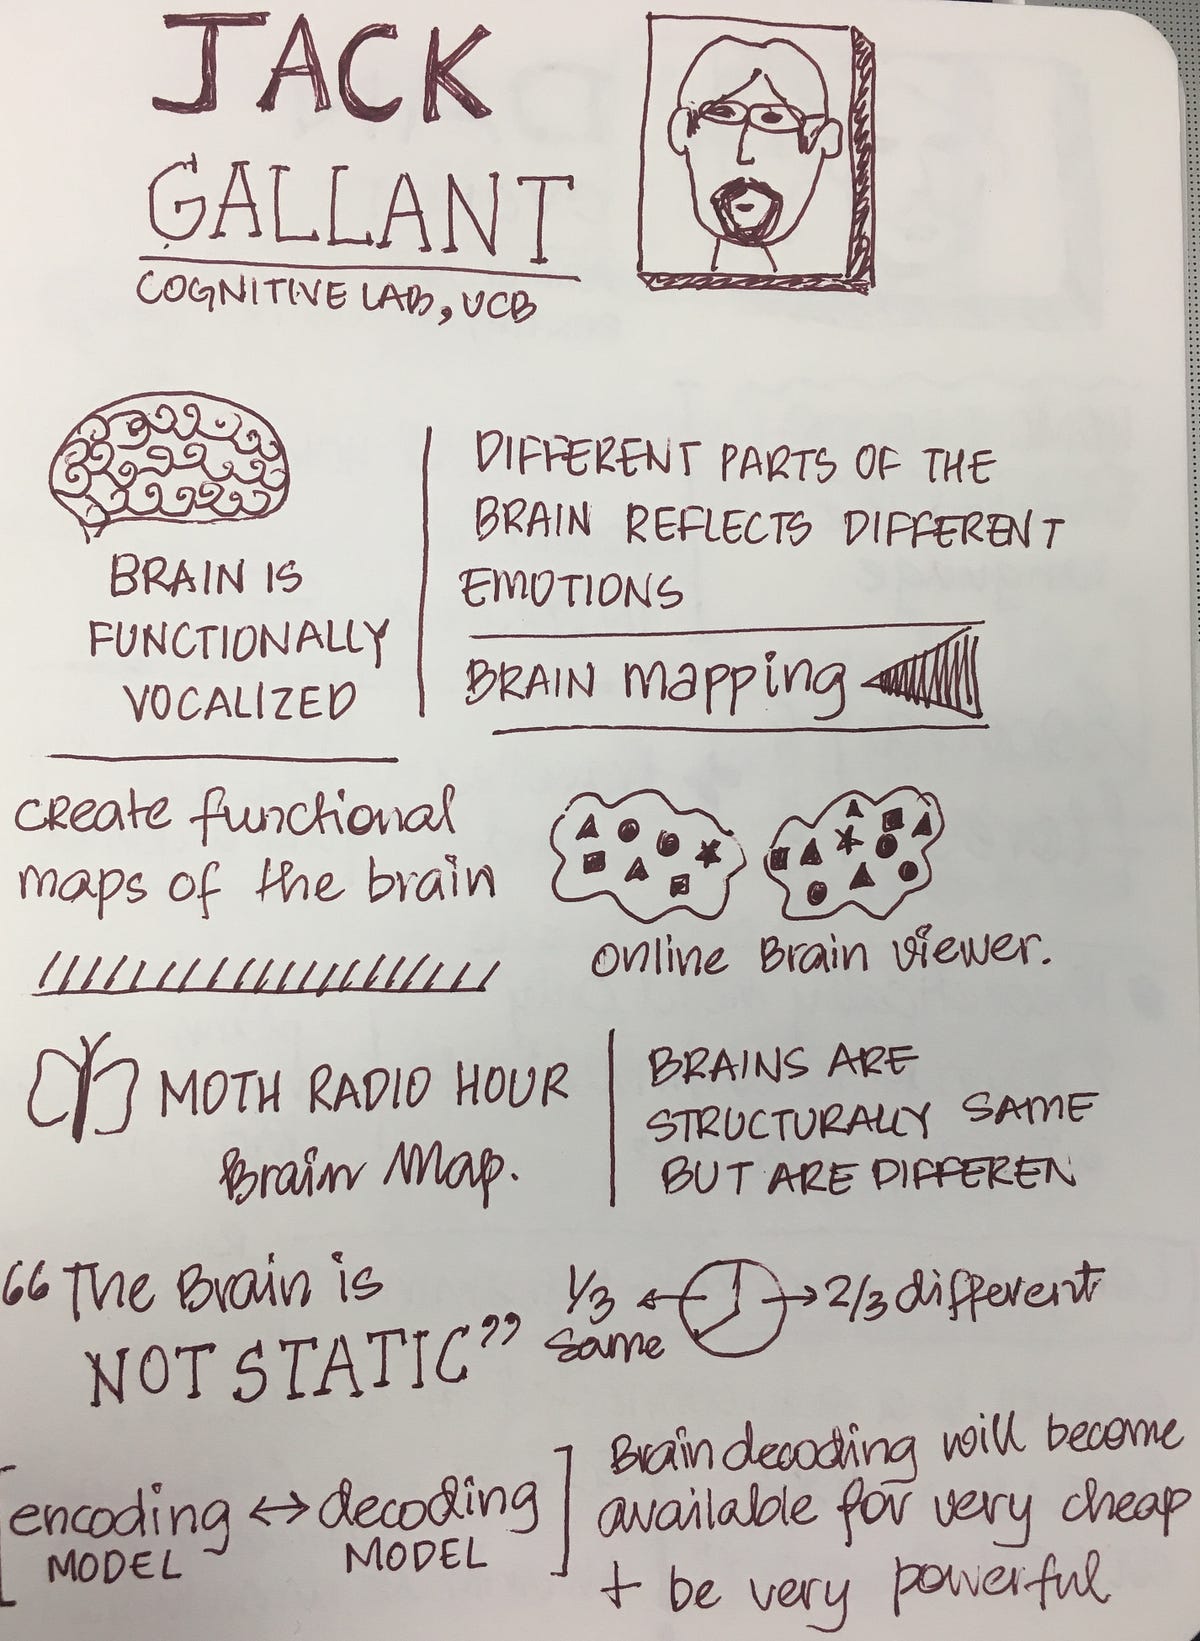 JACK
GALLANT
COGNITIVE LAB, UCB
BRAIN IS
FUNCTIONALLY
VOCALIZED
DIFFERENT PARTS OF THE
BRAIN REFLECTS DIFFERENT
EMOTIONS
BRAIN mapping
create functional
maps of the brain
online Brain viewer.
MOTH RADIO HOUR
Brain Map.
BRAINS ARE
STRUCTURALLY SAME
BUT ARE DIFFEREN
“The Brain is
NOT STATIC”
1/3
same
2/3 different
[encoding ↔ decoding]
MODEL MODEL
Brain decoding will become
available for very cheap
+ be very powerful